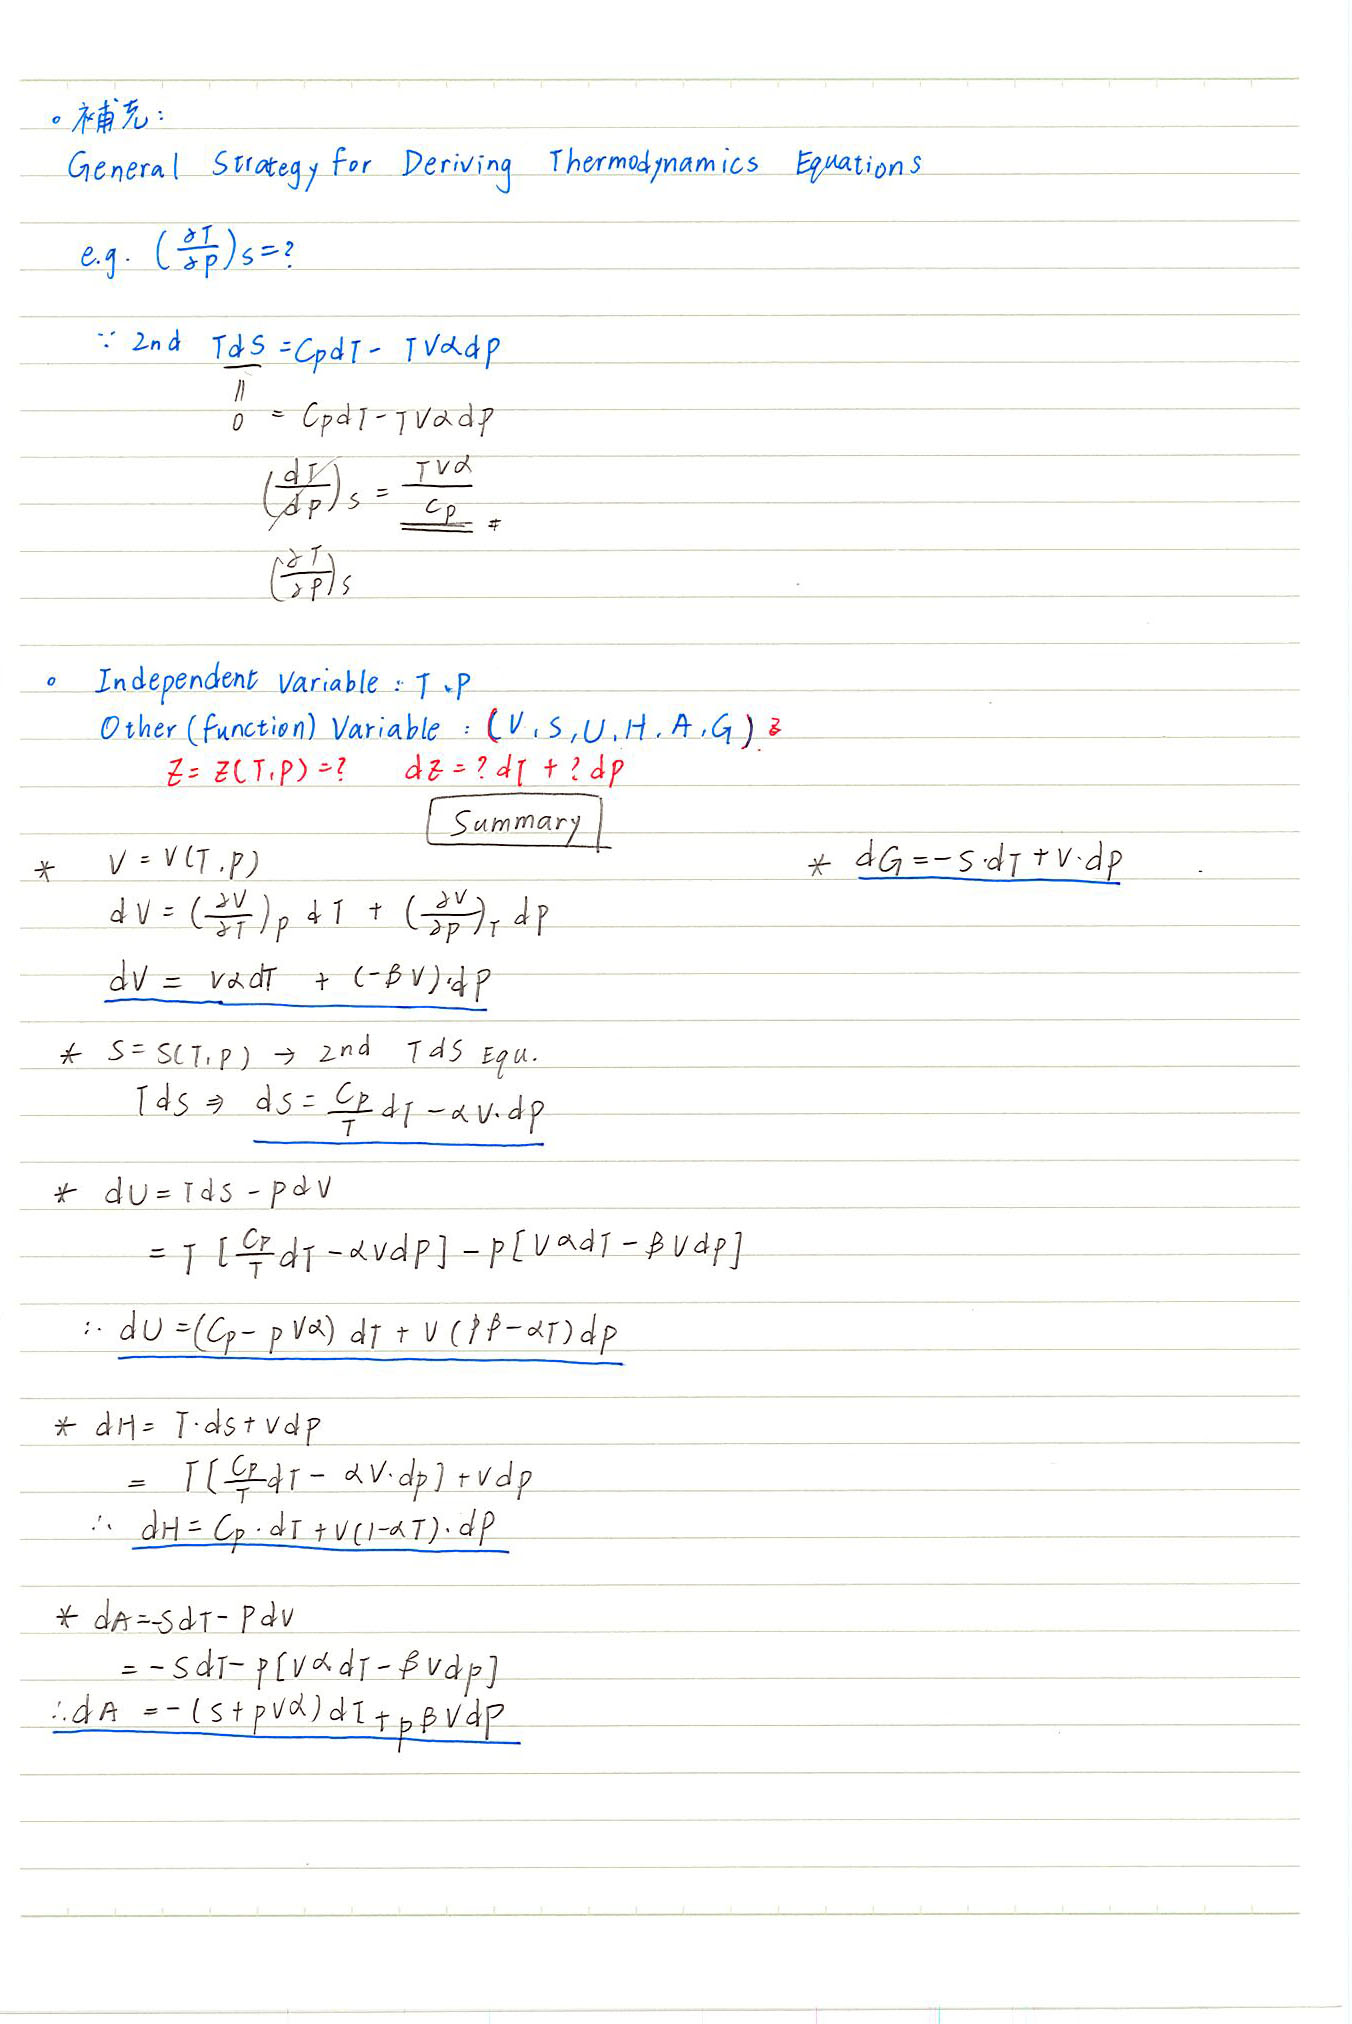 。補充:
General Strategy for Deriving Thermodynamics Equations
e.g. (∂T/∂P)s=?
∵ 2nd TdS = CpdT - TVαdP
॥
0 = CpdT - TVαdP
(dT/dP)s = TVα/Cp #
(∂T/∂P)s
。 Independent Variable : T、P
Other (function) Variable : (V, S, U, H, A, G) z
Z = Z(T,P) =? dZ = ? dT + ? dP
Summary
* V = V(T,P)
dV = (∂V/∂T)P dT + (∂V/∂P)T dP
dV = VαdT + (-βV)·dP
* S = S(T,P) → 2nd TdS Equ.
TdS ⇒ dS = Cp/T dT - αV·dP
* dU = TdS - PdV
= T [Cp/T dT - αVdP] - P[VαdT - βVdP]
∴ dU = (Cp - PVα) dT + V(Pβ - αT) dP
* dH = T·dS + VdP
= T[Cp/T dT - αV·dP] + VdP
∴ dH = Cp·dT + V(1-αT)·dP
* dA = -SdT - PdV
= -SdT - P[VαdT - βVdP]
∴ dA = -(S + PVα) dT + PβVdP
* dG = -S·dT + V·dP